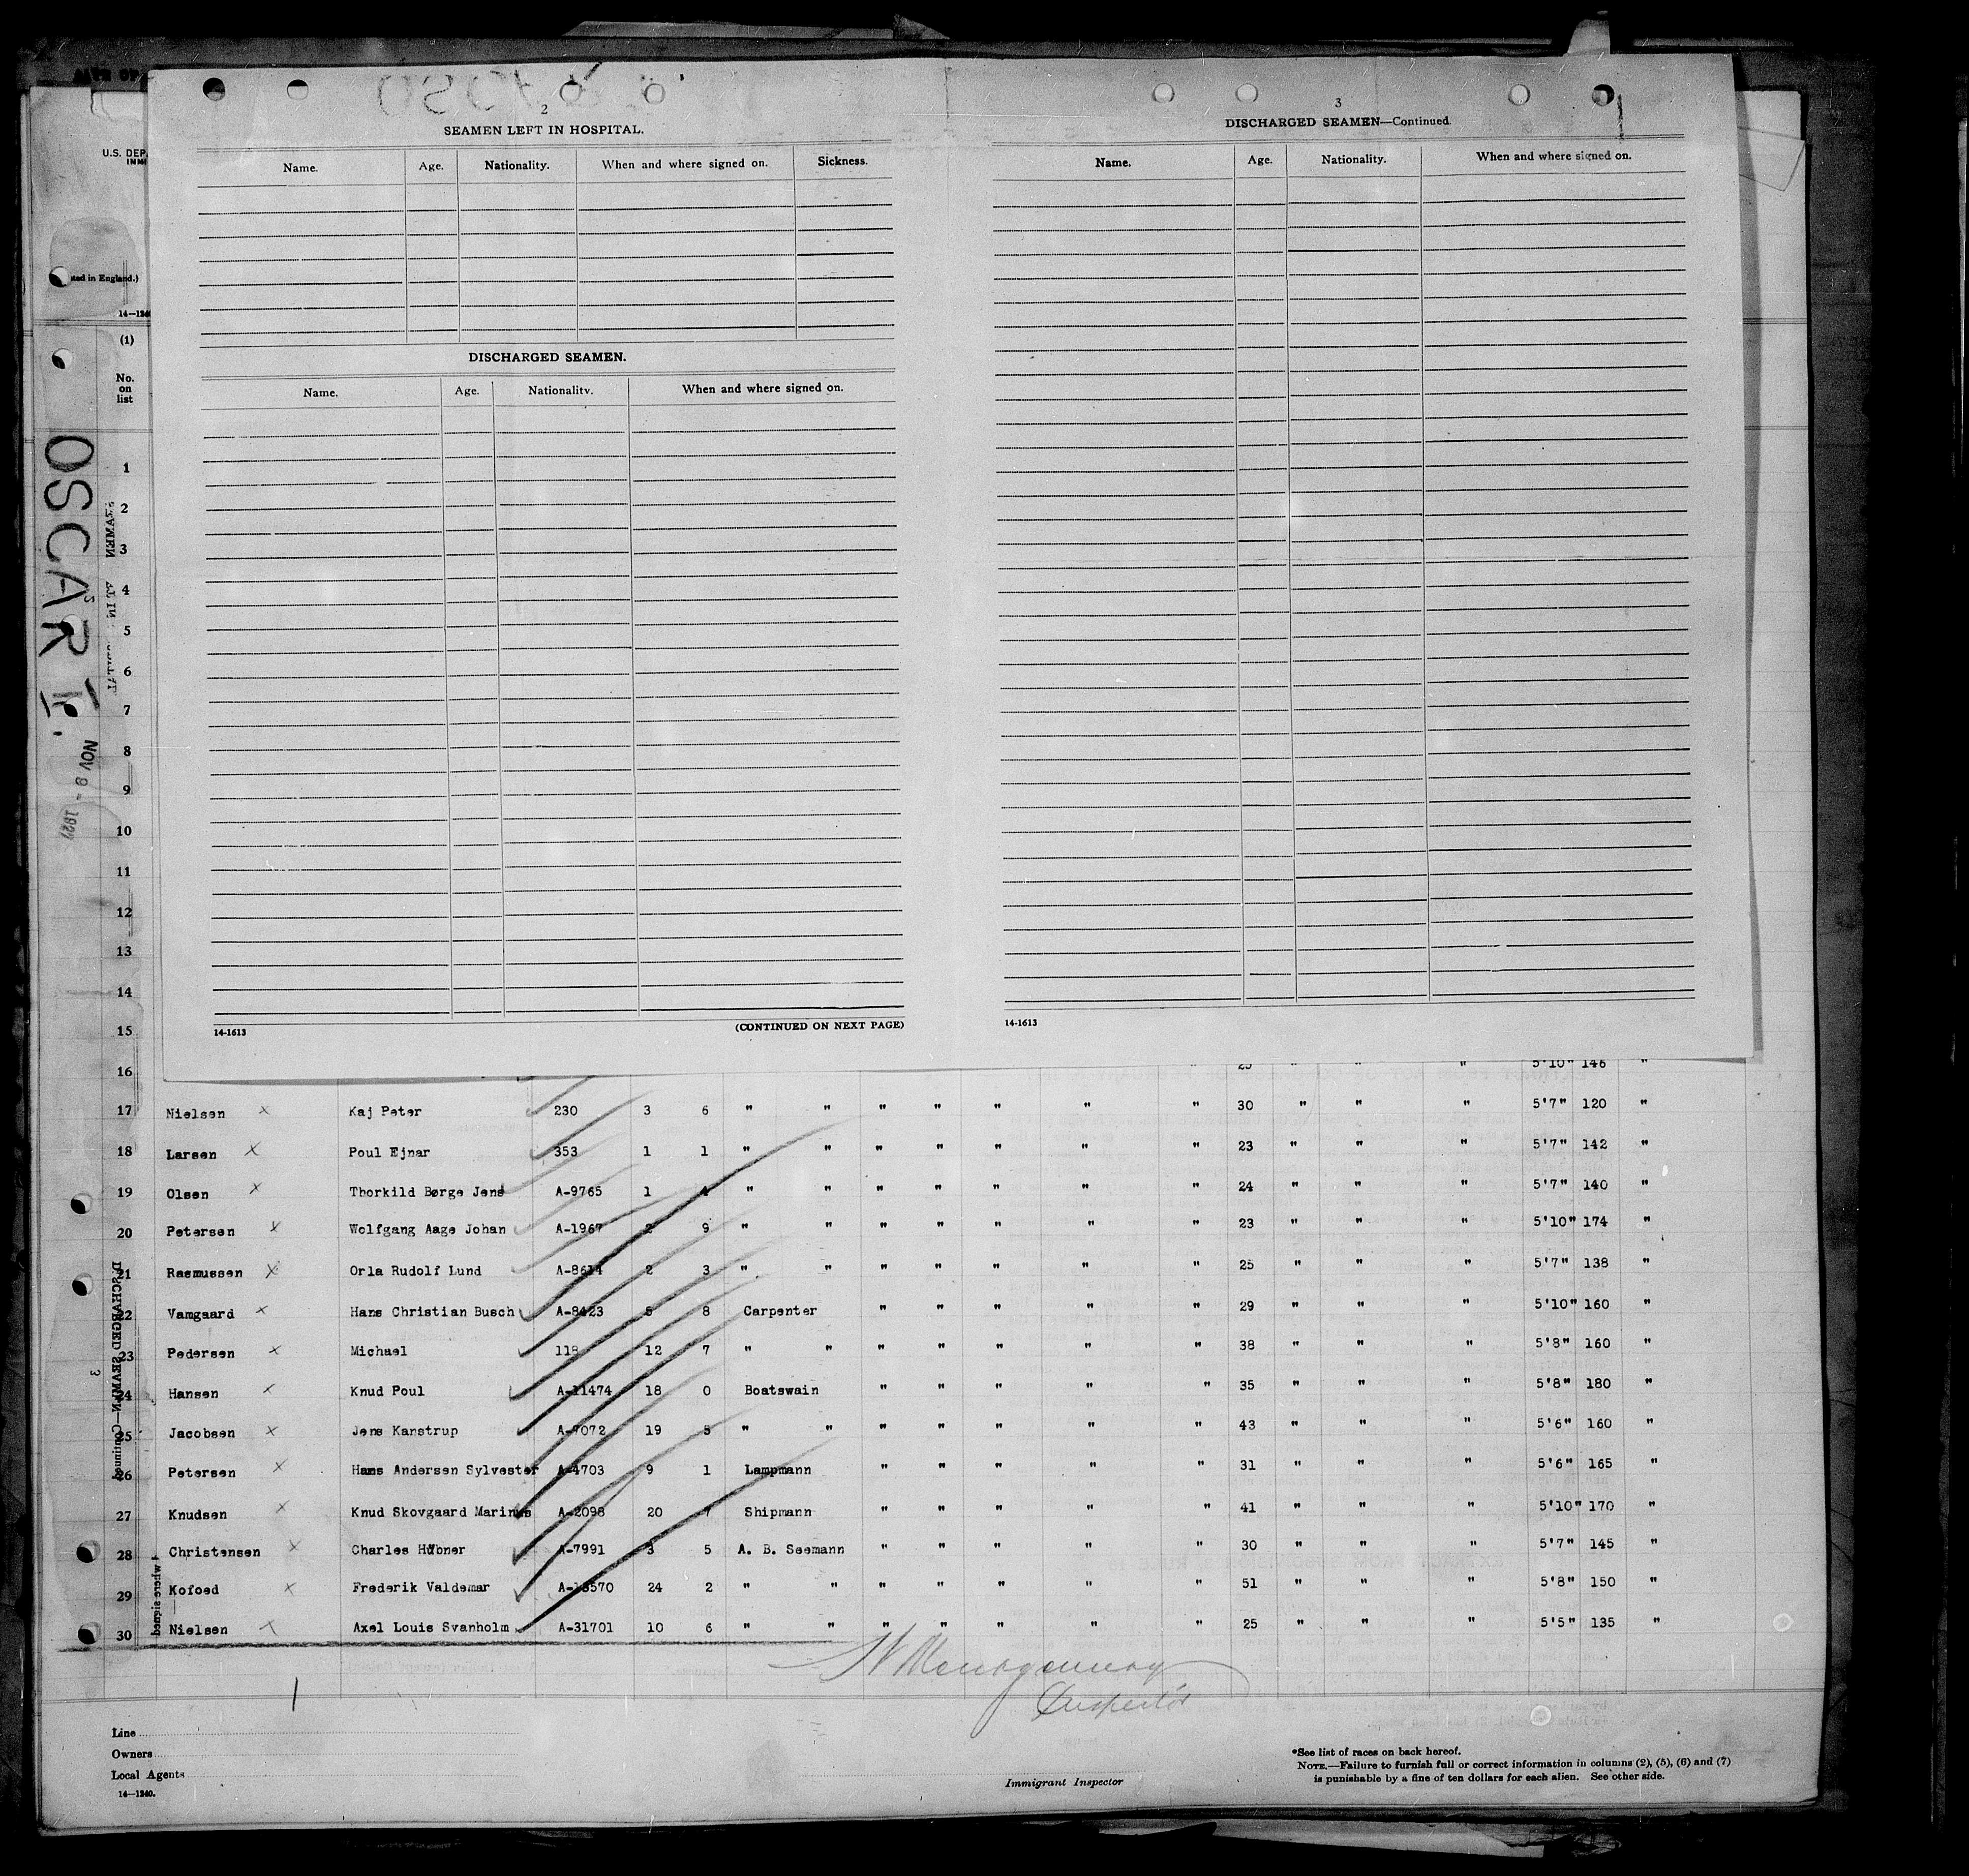 2
SEAMEN LEFT IN HOSPITAL.
Name. Age. Nationality. When and where signed on. Sickness.
DISCHARGED SEAMEN.
Name. Age. Nationality. When and where signed on.
14-1613 (CONTINUED ON NEXT PAGE)
3
DISCHARGED SEAMEN—Continued
Name. Age. Nationality. When and where signed on.
14-1613
U.S. DEP
IMMI
ted in England.)
(1)
No.
on
list
OSCAR II.
NOV 9 - 1927
1
2
3
4
5
6
7
8
9
10
11
12
13
14
15
16 " " " 5'10" 146 "
17 Nielsen x Kaj Peter 230 3 6 " " " " " " " 30 " " " 5'7" 120 "
18 Larsen x Poul Ejnar 353 1 1 " " " " " " " 23 " " " 5'7" 142 "
19 Olsen x Thorkild Børge Jens A-9765 1 4 " " " " " " " 24 " " " 5'7" 140 "
20 Petersen x Wolfgang Aage Johan A-1967 2 9 " " " " " " " 23 " " " 5'10" 174 "
21 Rasmussen x Orla Rudolf Lund A-8614 2 3 " " " " " " " 25 " " " 5'7" 138 "
22 Vamgaard x Hans Christian Busch A-8423 5 8 Carpenter " " " " " 29 " " " 5'10" 160 "
23 Pedersen x Michael 118 12 7 " " " " " " " 38 " " " 5'8" 160 "
24 Hansen x Knud Poul A-11474 18 0 Boatswain " " " " " 35 " " " 5'8" 180 "
25 Jacobsen x Jens Kanstrup A-7072 19 5 " " " " " " " 43 " " " 5'6" 160 "
26 Petersen x Hans Andersen Sylvester A-4703 9 1 Lampmann " " " " " 31 " " " 5'6" 165 "
27 Knudsen x Knud Skovgaard Marinus A-2098 20 7 Shipmann " " " " " 41 " " " 5'10" 170 "
28 Christensen x Charles Hübner A-7991 3 5 A. B. Seemann " " " " " 30 " " " 5'7" 145 "
29 Kofoed x Frederik Valdemar 24 2 " " " " " " " 51 " " " 5'8" 150 "
30 Nielsen x Axel Louis Svanholm A-31701 10 6 " " " " " " " 25 " " " 5'5" 135 "
Montgomery
Inspector
Line
Owners
Local Agents
14—1240.
Immigrant Inspector
*See list of races on back hereof.
NOTE.—Failure to furnish full or correct information in columns (2), (5), (6) and (7)
is punishable by a fine of ten dollars for each alien. See other side.